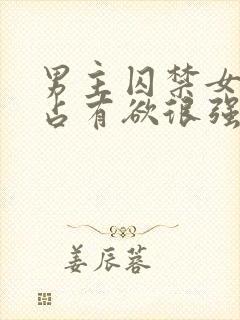 男主囚禁女
占有欲很强
姜辰蓉